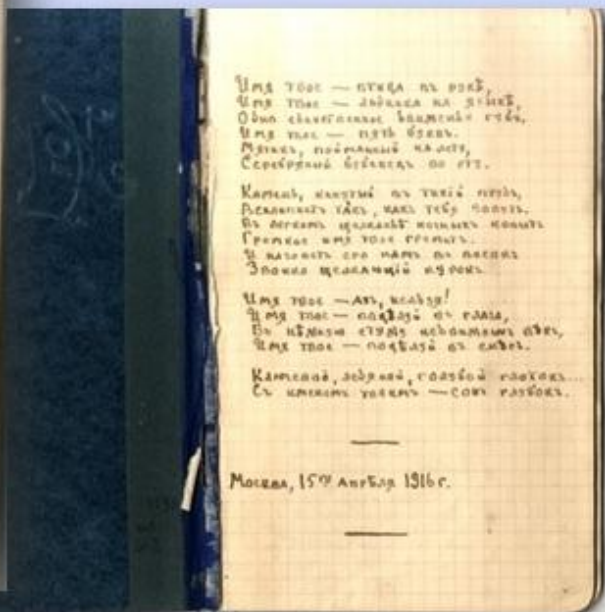 Имя твое — птица въ рукѣ,
Имя твое — льдинка на языкѣ,
Одно единственное движенье губъ,
Имя твое — пять буквъ.
Мячикъ, пойманный на лету,
Серебряный бубенецъ во рту.
Камень, кинутый въ тихій прудъ,
Всхлипнетъ такъ, какъ тебя зовутъ.
Въ легкомъ щелканьѣ ночныхъ копытъ
Громкое имя твое гремитъ.
И назоветъ его намъ въ високъ
Звонко щелкающій курокъ.
Имя твое — ахъ, нельзя!
Имя твое — поцѣлуй въ глаза,
Въ нѣжную стужу недвижныхъ вѣкъ,
Имя твое — поцѣлуй въ снѣгъ.
Ключевой, ледяной, голубой глотокъ...
Съ именемъ твоимъ — сонъ глубокъ.
Москва, 15го Апрѣля 1916 г.